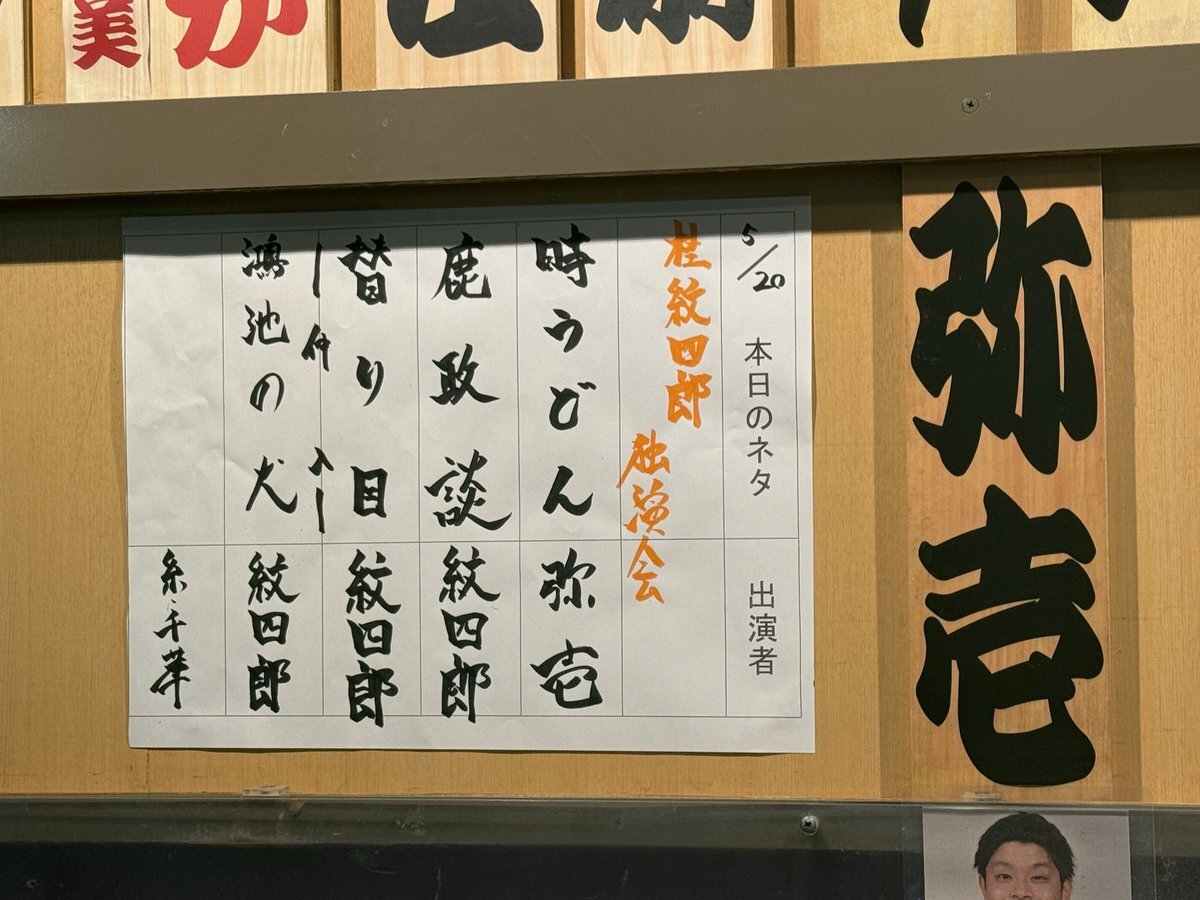 弥壱
5/20 本日のネタ 出演者
桂紋四郎
独演会
時うどん 弥壱
鹿政談 紋四郎
替り目 紋四郎
ー仲入ー
鴻池の犬 紋四郎
美
か